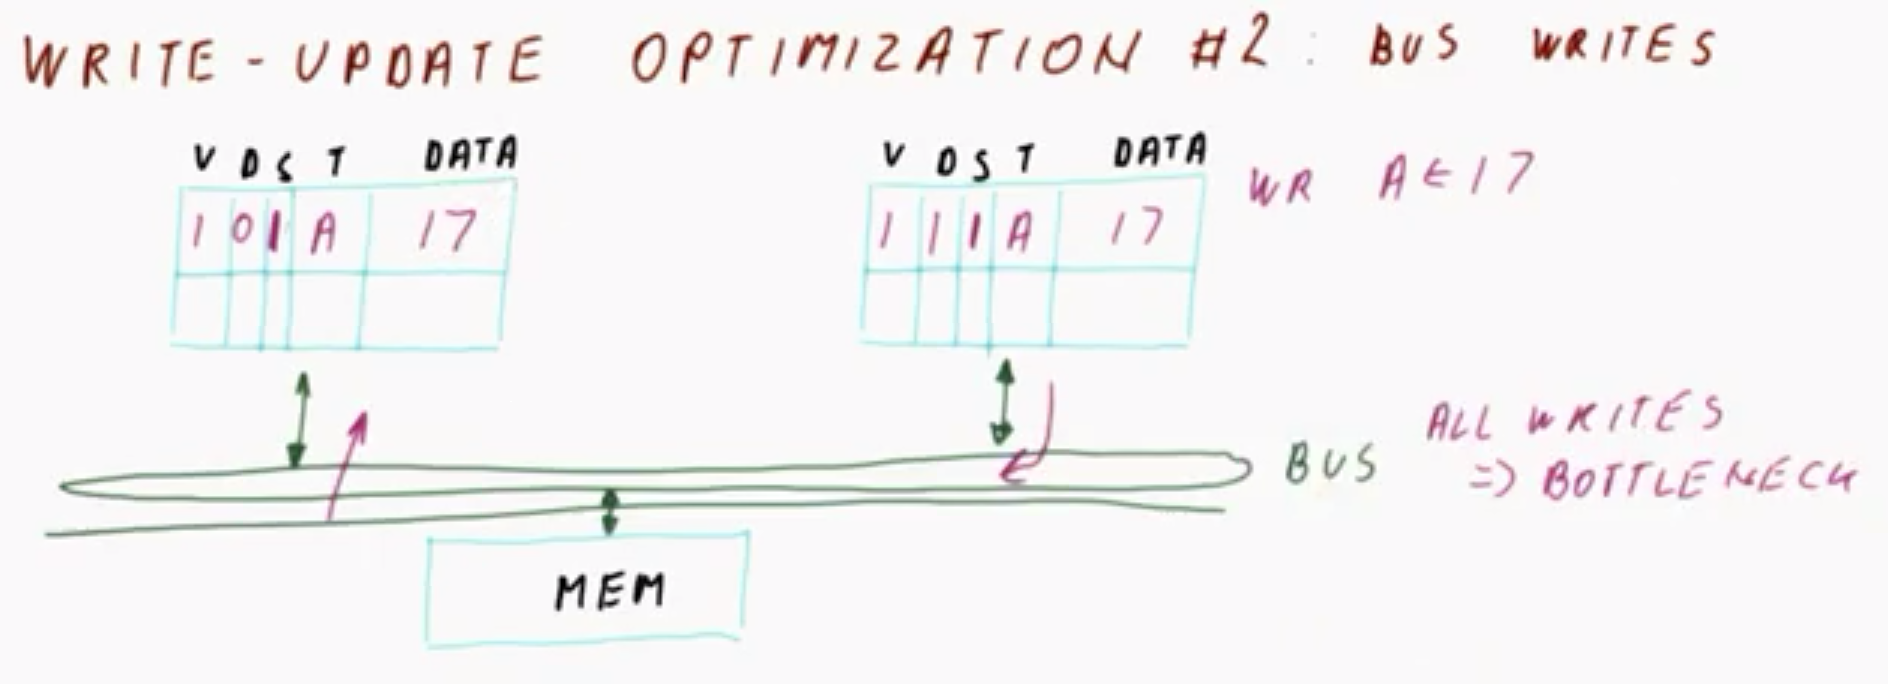 WRITE-UPDATE OPTIMIZATION #2: BUS WRITES
V D S T DATA
1 0 1 A 17
V D S T DATA
1 1 1 A 17
WR A ← 17
BUS
ALL WRITES
=> BOTTLENECK
MEM